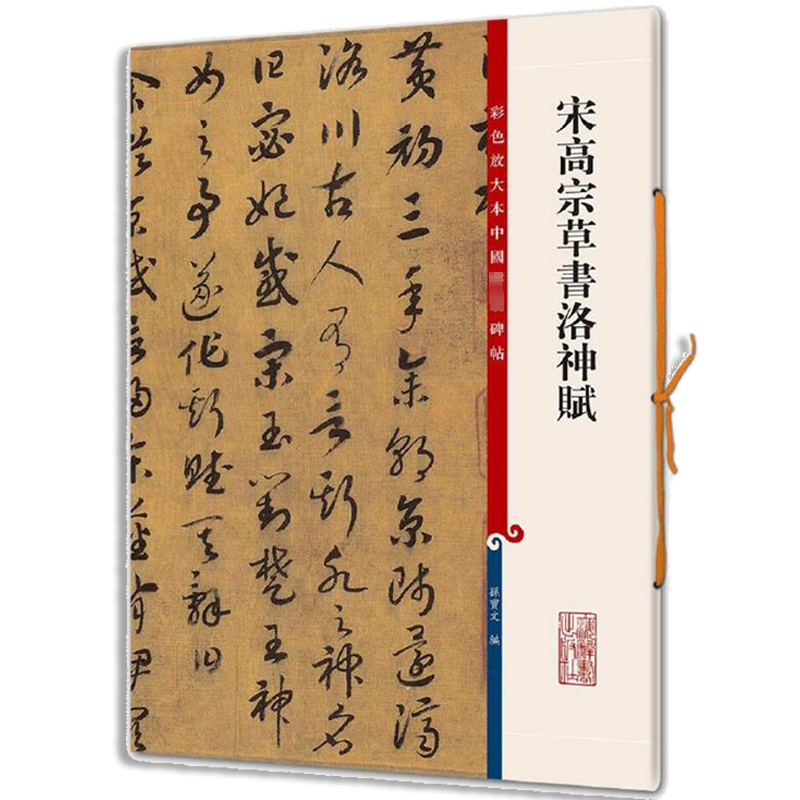 宋高宗草書洛神賦
彩色放大本中國
碑帖
孫寶文 編
黃初三年余朝京師還濟
洛川古人有言斯水之神名
曰宓妃感宋玉對楚王神
女之事遂作斯賦其辭曰
余從京域言歸東藩背伊闕